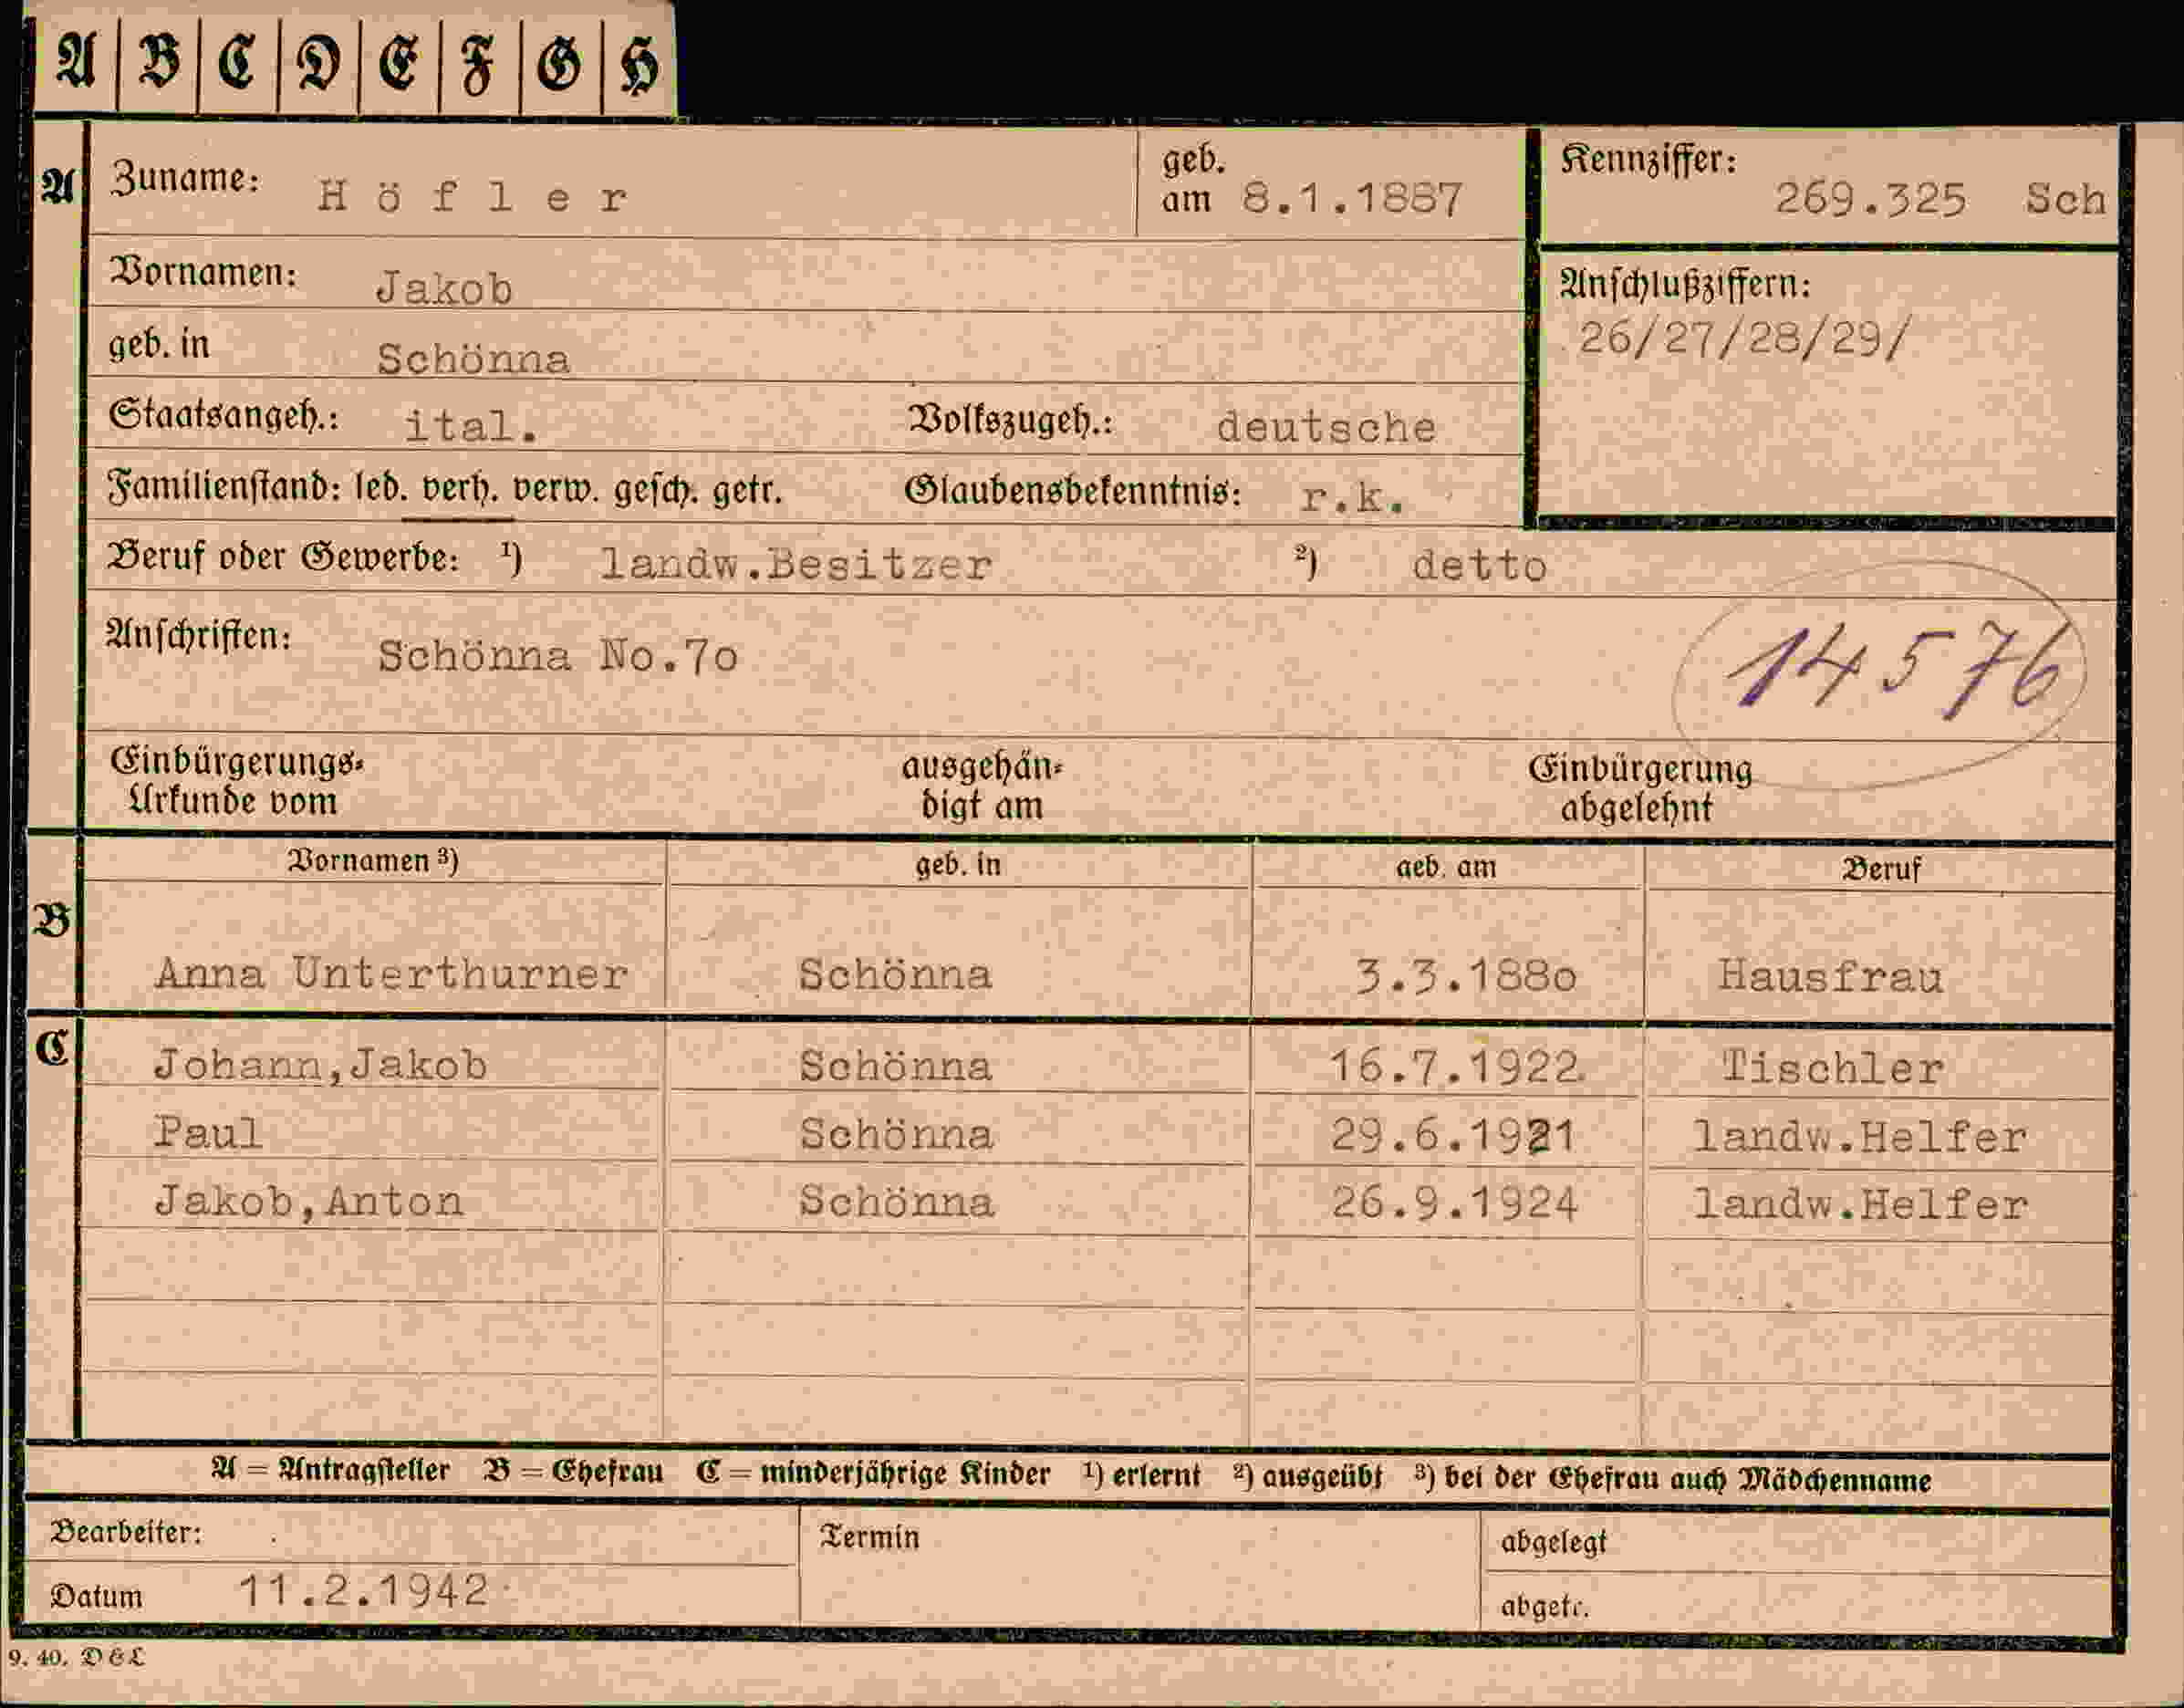 A B C D E F G H
A Zuname: Höfler geb. am 8.1.1887 Kennziffer: 269.325 Sch
Vornamen: Jakob Anschlußziffern:
26/27/28/29/
geb. in Schönna
Staatsangeh.: ital. Volkszugeh.: deutsche
Familienstand: led. verh. verw. gesch. getr. Glaubensbekenntnis: r.k.
Beruf oder Gewerbe: ¹) landw.Besitzer ²) detto
Anschriften: Schönna No.7o
14576
Einbürgerungs-Urkunde vom ausgehändigt am Einbürgerung abgelehnt
Vornamen ³) geb. in geb. am Beruf
B
Anna Unterthurner Schönna 3.3.188o Hausfrau
C Johann,Jakob Schönna 16.7.1922 Tischler
Paul Schönna 29.6.1921 landw.Helfer
Jakob,Anton Schönna 26.9.1924 landw.Helfer
A = Antragsteller B = Ehefrau C = minderjährige Kinder ¹) erlernt ²) ausgeübt ³) bei der Ehefrau auch Mädchenname
Bearbeiter: Termin abgelegt
Datum 11.2.1942 abgetr.
9. 40. D & L